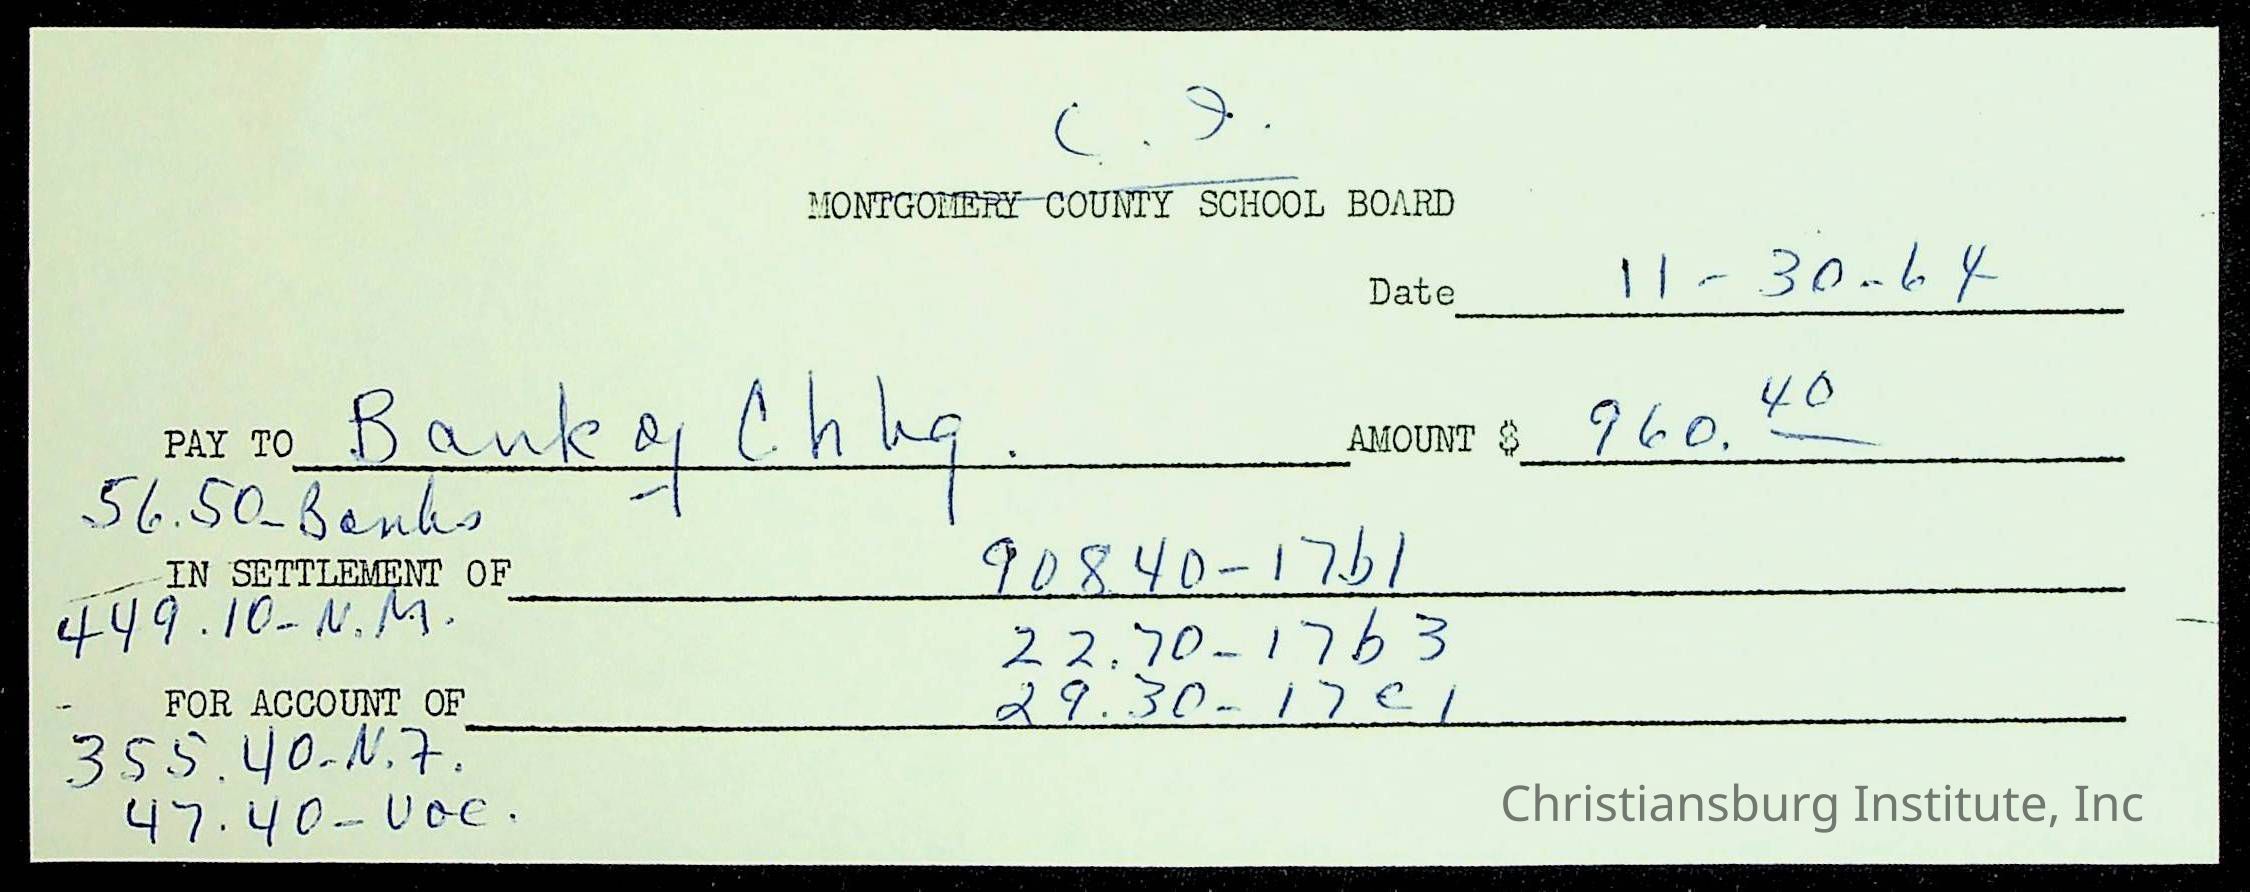 C. I.
MONTGOMERY COUNTY SCHOOL BOARD
Date 11-30-64
PAY TO Bank of Chbg. AMOUNT $ 960.40
56.50-Banks
IN SETTLEMENT OF 908.40-17b1
449.10-N.M.
22.70-17b3
FOR ACCOUNT OF 29.30-17c1
355.40-N.F.
47.40-Voc.
Christiansburg Institute, Inc